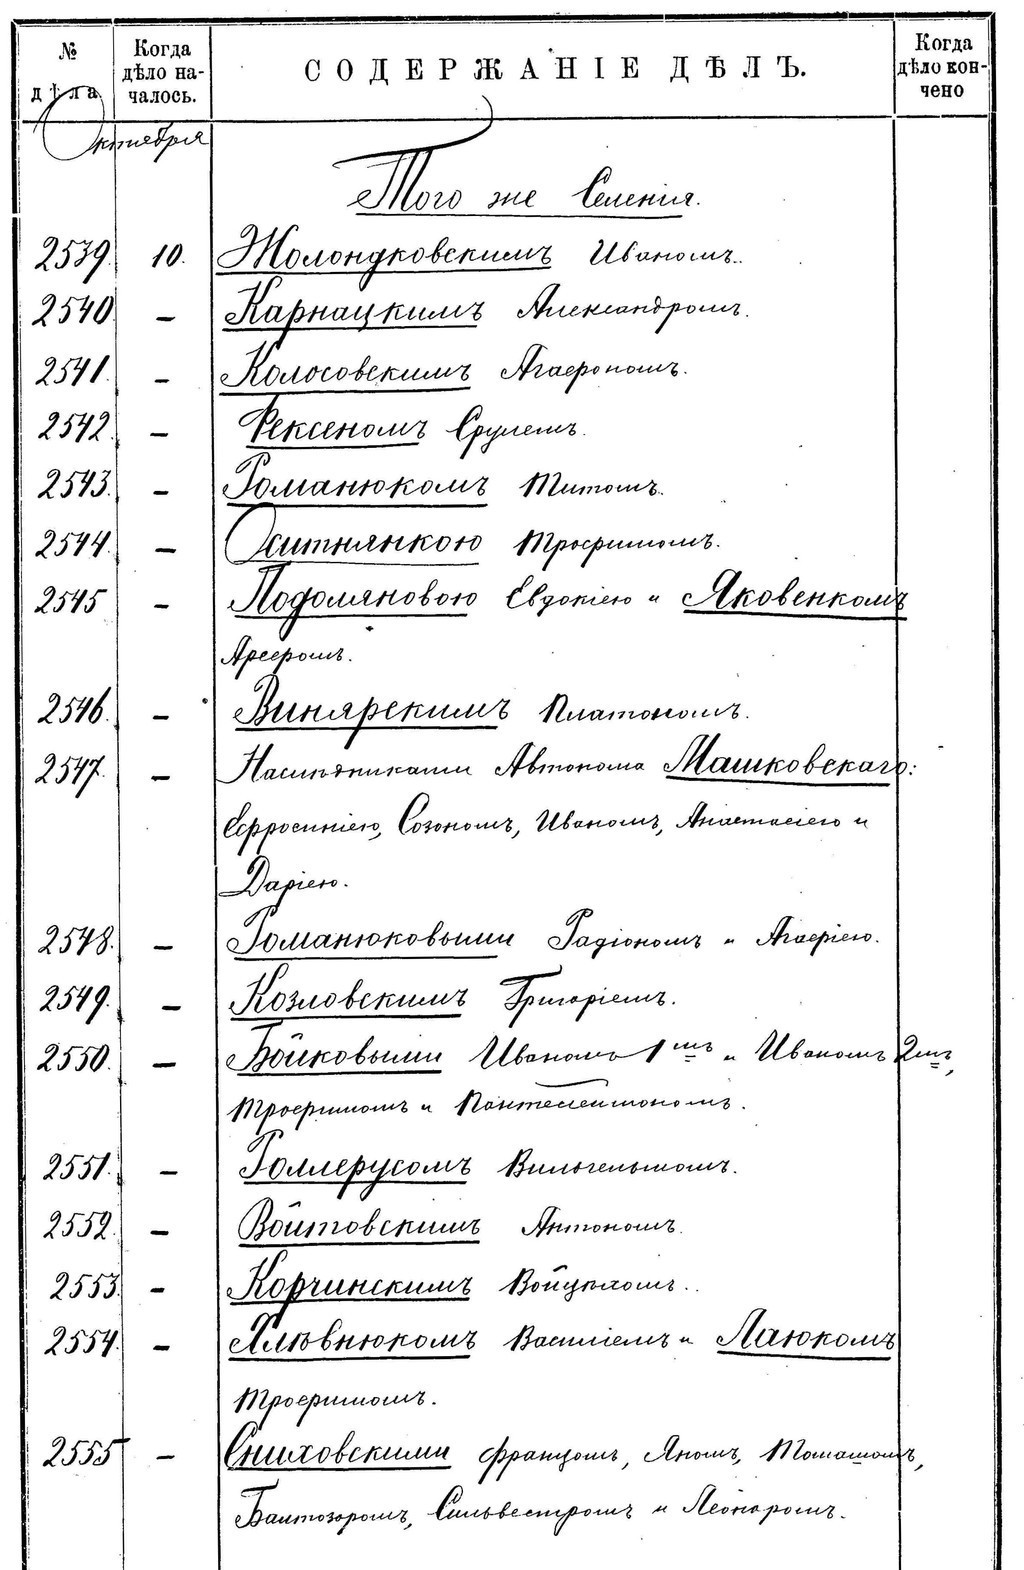 № дѣла
Когда дѣло началось.
СОДЕРЖАНІЕ ДѢЛЪ.
Когда дѣло кончено
Октября
Того же Селенія.
2539. 10. Жолондковскимъ Иваномъ.
2540. — Карнацкимъ Александромъ.
2541. — Колосовскимъ Агафономъ.
2542. — Фексеномъ Срулемъ.
2543. — Романюкомъ Титомъ.
2544. — Трофимомъ.
2545 — Евдокіею и Яковенкомъ
2546. — Винярскимъ Платономъ.
2547. — Наслѣдниками Автонома Машковскаго:
Ефросиніею, Созономъ, Иваномъ, Анастасіею и
Даріею.
2548. — Романюковыми Радіономъ и Агафіею.
2549. — Козловскимъ Григоріемъ.
2550. — Бойковыми Иваномъ 1мъ и Иваномъ 2мъ,
Трофимомъ и Пантелеимономъ.
2551. — Роллерусомъ Вильгельмомъ.
2552. — Войтовскимъ Антономъ.
2553. — Корчинскимъ Войцѣхомъ.
2554. — Василіемъ и Лаюкомъ
Трофимомъ.
2555 — Сниховскими Францомъ, Яномъ, Томашомъ,
Балтозоромъ, Сильвестромъ и Леонаромъ.